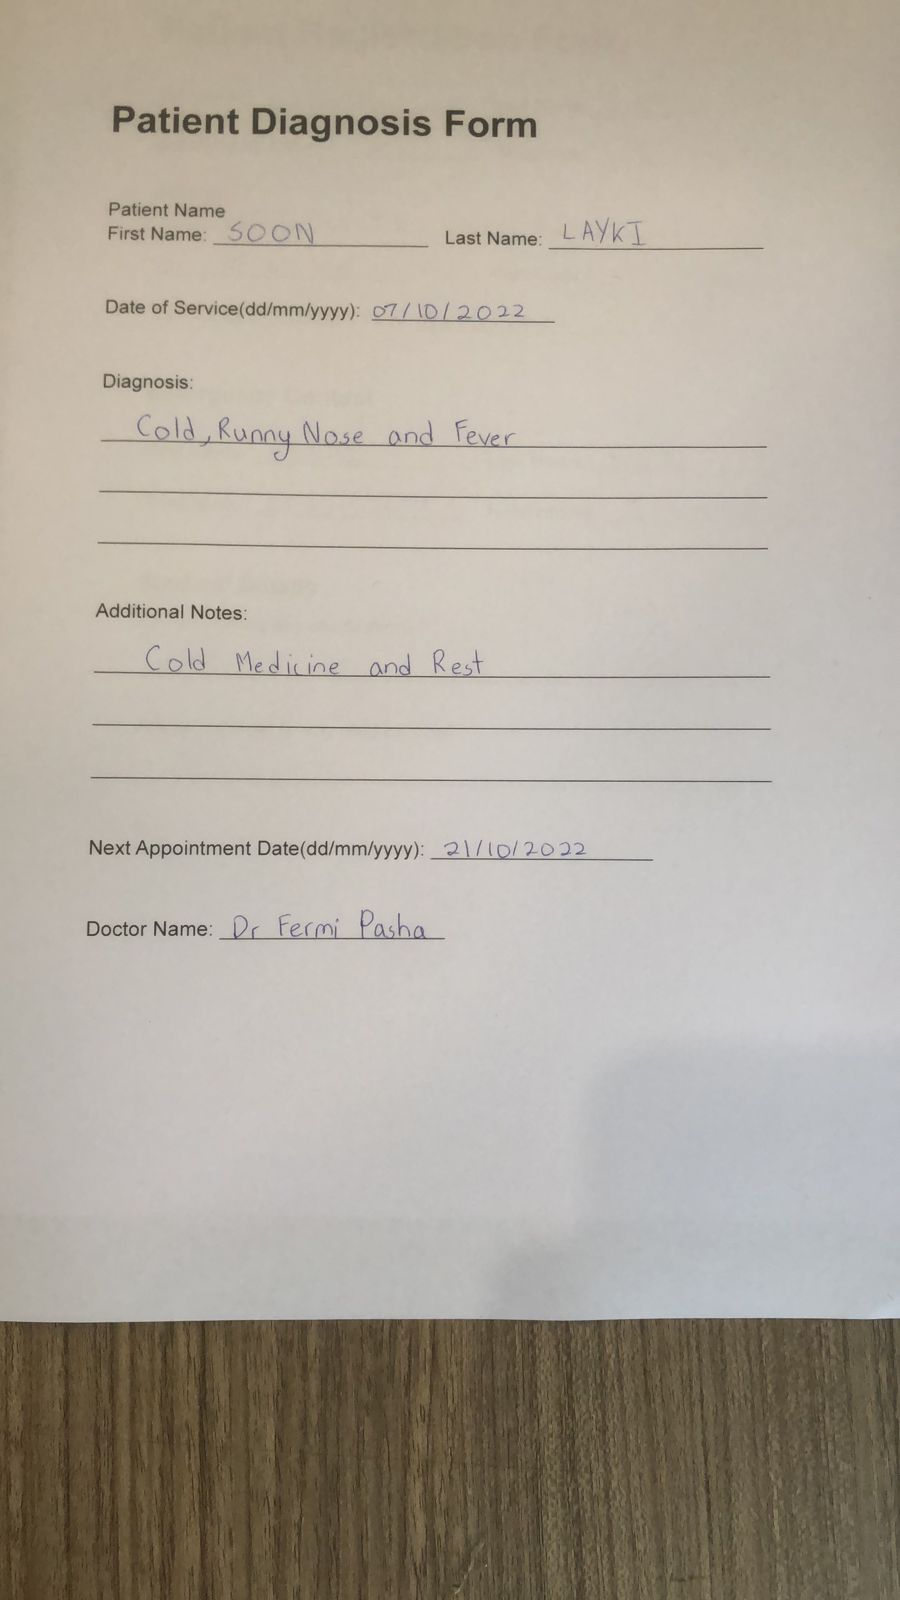 Patient Diagnosis Form
Patient Name
First Name: SOON Last Name: LAYKI
Date of Service(dd/mm/yyyy): 07/10/2022
Diagnosis:
Cold, Runny Nose and Fever
Additional Notes:
Cold Medicine and Rest
Next Appointment Date(dd/mm/yyyy): 21/10/2022
Doctor Name: Dr Fermi Pasha